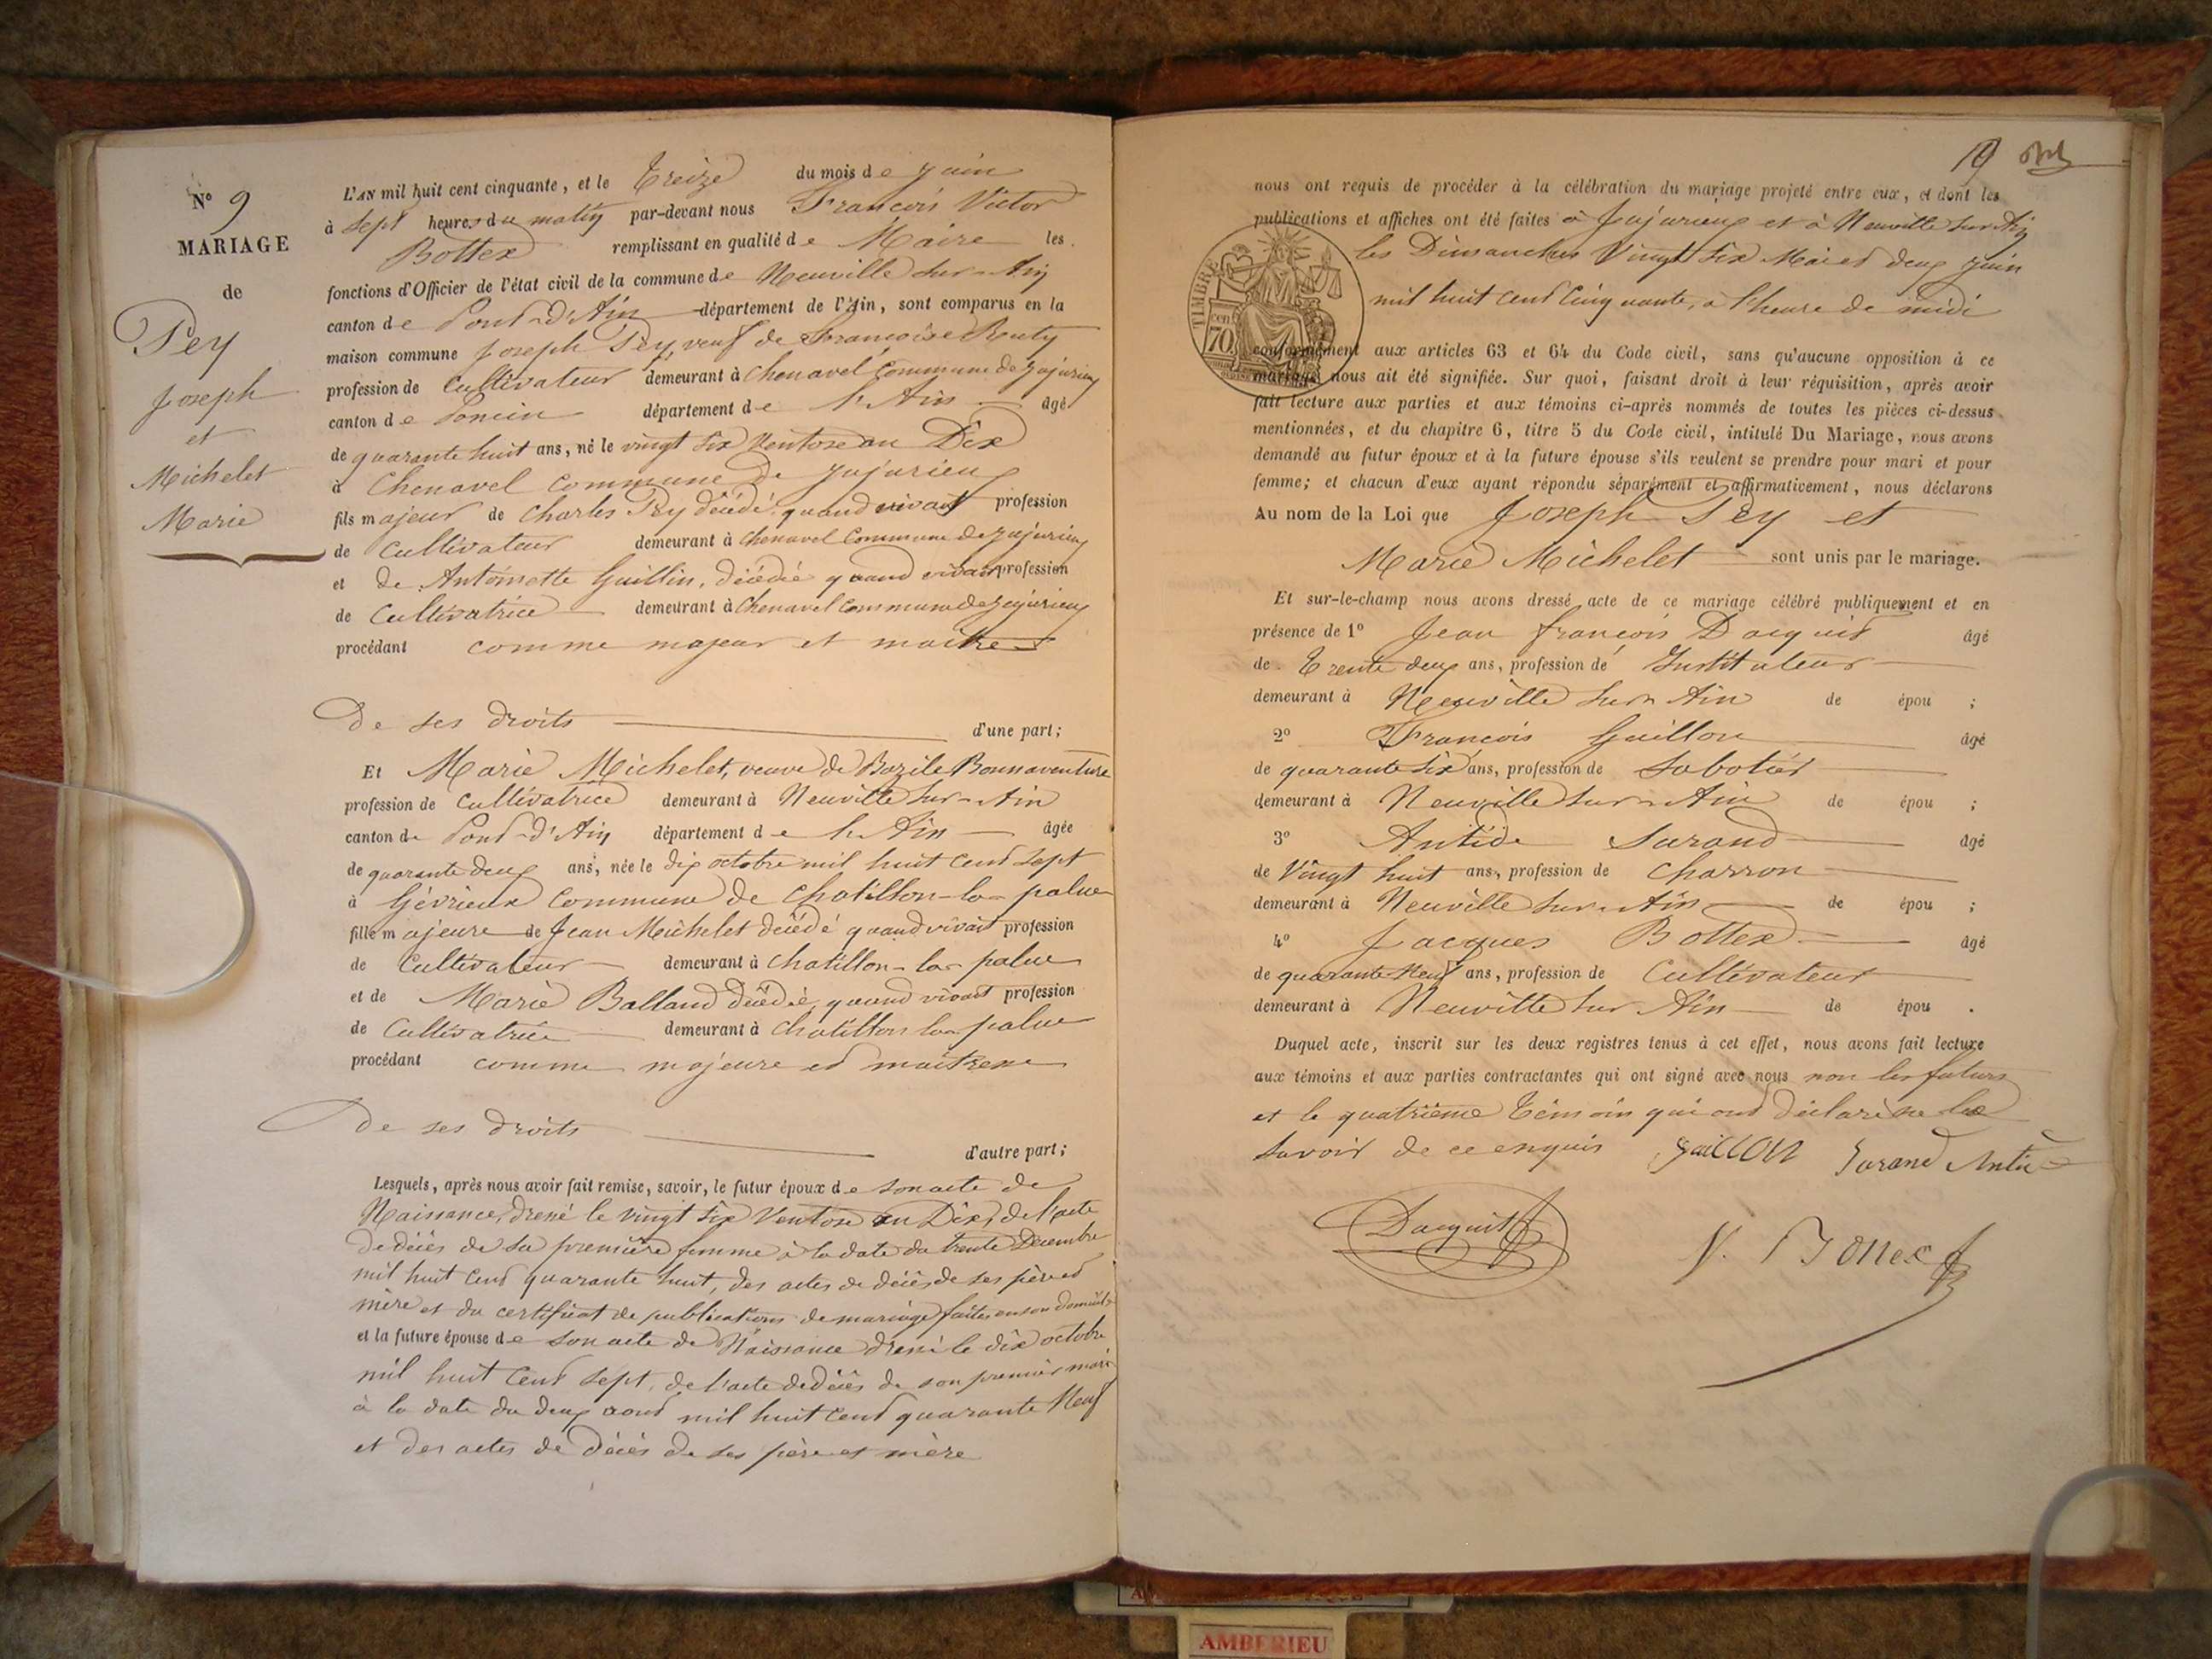 N° 9
MARIAGE
de
Pey
Joseph
et
Michelet
Marie
L'AN mil huit cent cinquante, et le Treize du mois de juin
à sept heures du matin par-devant nous François Victor
Bottex remplissant en qualité de Maire les
fonctions d'Officier de l'état civil de la commune de Neuville sur-Ain
canton de Pont-d'Ain département de l'Ain, sont comparus en la
maison commune Joseph Pey, veuf de Françoise Ruty
profession de Cultivateur demeurant à Chenavel Commune de Jujurieux
canton de Poncin département de l'Ain âgé
de quarante huit ans, né le vingt six Ventose an Dix
à Chenavel Commune de Jujurieux
fils majeur de Charles Pey décédé quand vivait profession
de Cultivateur demeurant à Chenavel Commune de Jujurieux
et de Antoinette Guillin, décédé quand vivait profession
de Cultivatrice demeurant à Chenavel Commune de Jujurieux
procédant comme majeur et maitre
De ses droits d'une part;
Et Marie Michelet, veuve de Bazile Bonnaventure
profession de Cultivatrice demeurant à Neuville sur-Ain
canton de Pont-d'Ain département de l'Ain âgée
de quarante deux ans, née le dix octobre mil huit cent sept
à Gévrieux Commune de Chatillon-la-palue
fille majeure de Jean Michelet décédé quand vivait profession
de Cultivateur demeurant à Chatillon-la-palue
et de Marie Balland décédé, quand vivait profession
de Cultivatrice demeurant à Chatillon la-palue
procédant comme majeure et maitresse
De ses droits
d'autre part;
Lesquels, après nous avoir fait remise, savoir, le futur époux de son acte de
Naissance, dressé le vingt six Ventose an Dix, de l'acte
de décès de sa première femme à la date du trente Décembre
mil huit Cent quarante huit, des actes de décès de ses père et
mère et du certificat de publications de mariage faites en son domicile
et la future épouse de son acte de Naissance dressé le dix octobre
mil huit Cent sept, de l'acte de décès de son premier mari
à la date du deux aout mil huit Cent quarante Neuf
et des actes de décès de ses père et mère
19
nous ont requis de procéder à la célébration du mariage projeté entre eux, et dont les
publications et affiches ont été faites à Jujurieux et à Neuville sur-Ain
les Dimanches Vingt six Mai et deux juin
mil huit Cent Cinquante, à l'heure de midi
TIMBRE
cen
70
conformément aux articles 63 et 64 du Code civil, sans qu'aucune opposition à ce
mariage nous ait été signifiée. Sur quoi, faisant droit à leur réquisition, après avoir
fait lecture aux parties et aux témoins ci-après nommés de toutes les pièces ci-dessus
mentionnées, et du chapitre 6, titre 5 du Code civil, intitulé Du Mariage, nous avons
demandé au futur époux et à la future épouse s'ils veulent se prendre pour mari et pour
femme; et chacun d'eux ayant répondu séparément et affirmativement, nous déclarons
Au nom de la Loi que Joseph Pey et
Marie Michelet sont unis par le mariage.
Et sur-le-champ nous avons dressé acte de ce mariage célébré publiquement et en
présence de 1° Jean François Dacquit âgé
de Trente deux ans, profession de Instituteur
demeurant à Neuville sur-Ain de épou ;
2° François Gaillon âgé
de quarante six ans, profession de Sabotier
demeurant à Neuville sur-Ain de épou ;
3° Antide Jarand âgé
de Vingt huit ans, profession de Charron
demeurant à Neuville sur-Ain de épou ;
4° Jacques Bottex âgé
de quarante Neuf ans, profession de Cultivateur
demeurant à Neuville sur Ain de épou .
Duquel acte, inscrit sur les deux registres tenus à cet effet, nous avons fait lecture
aux témoins et aux parties contractantes qui ont signé avec nous non les futurs
et le quatrième Témoin qui ont déclaré ne le
savoir de ce enquis gaillon Jarand Antide
Dacquit V. Bottex
AMBERIEU